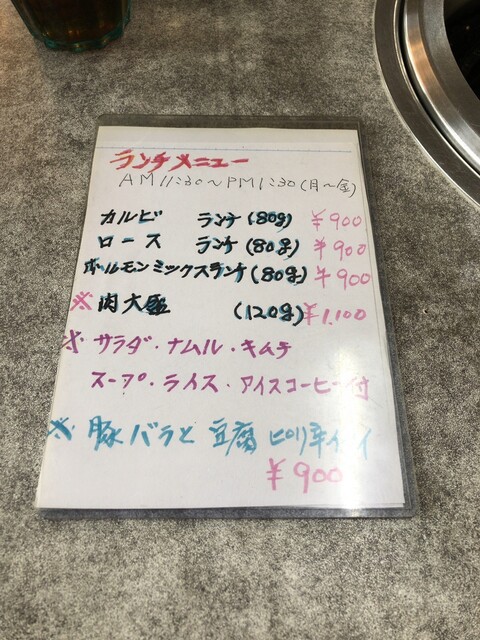 ランチメニュー
AM11:30～PM1:30(月～金)
カルビ ランチ(80g) ¥900
ロース ランチ(80g) ¥900
ホルモンミックスランチ(80g) ¥900
※肉大盛 (120g) ¥1,100
※サラダ・ナムル・キムチ
スープ・ライス・アイスコーヒー付
※豚バラと豆腐ピリ辛
¥900